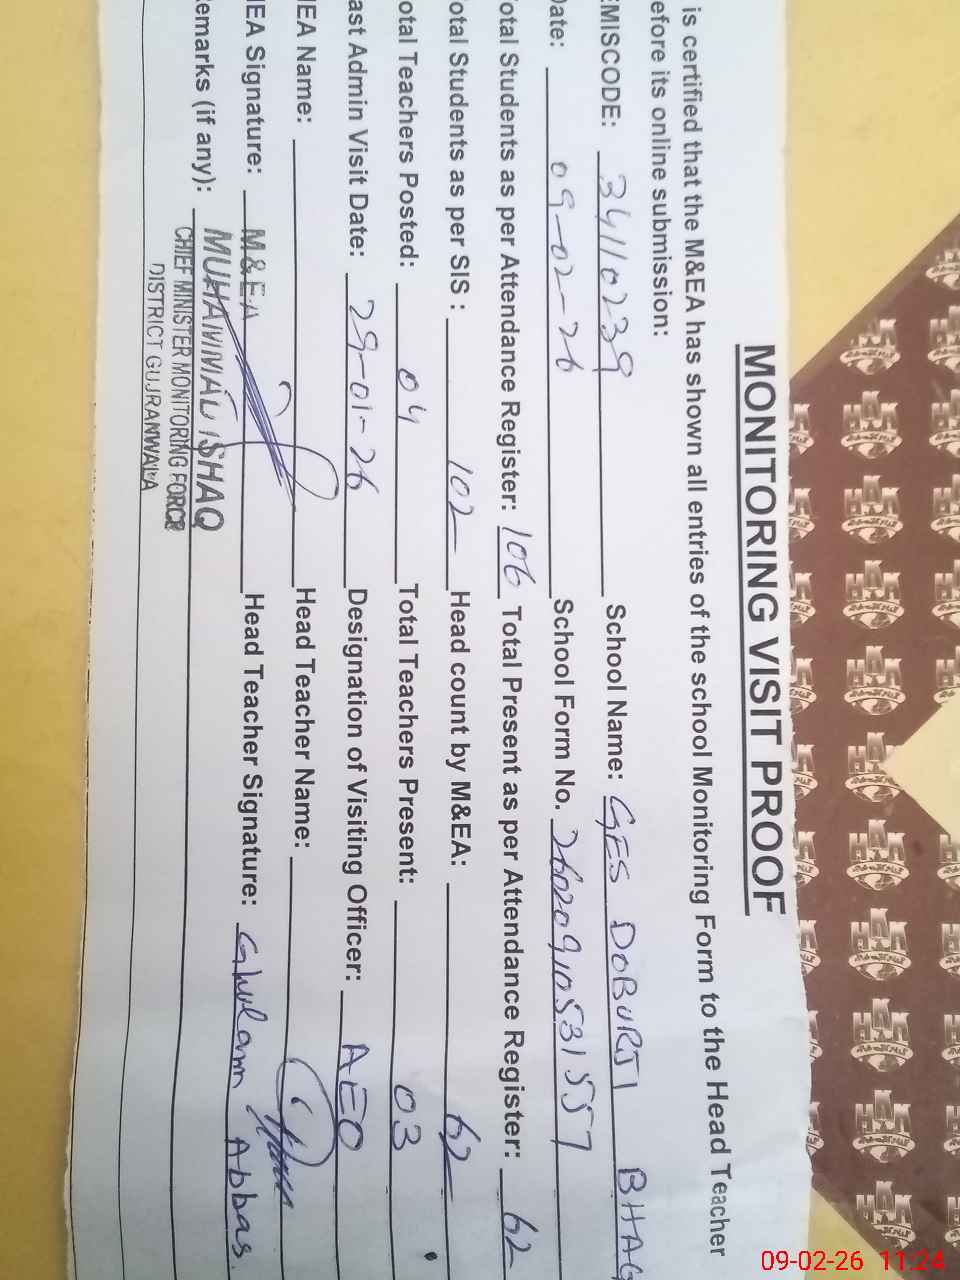 MONITORING VISIT PROOF
is certified that the M&EA has shown all entries of the school Monitoring Form to the Head Teacher
efore its online submission:
EMISCODE: 34110239 School Name: GES DOBURJI BHAG
Date: 09-02-26 School Form No. 26020910531557
otal Students as per Attendance Register: 106 Total Present as per Attendance Register: 62
otal Students as per SIS : 102 Head count by M&EA: 62
otal Teachers Posted: 04 Total Teachers Present: 03
ast Admin Visit Date: 29-01-26 Designation of Visiting Officer: AEO
EA Name: Head Teacher Name:
EA Signature: M&EA Head Teacher Signature: Ghulam Abbas
emarks (if any): MUHAMMAD ISHAQ
CHIEF MINISTER MONITORING FORCE
DISTRICT GUJRANWALA
09-02-26 11:24